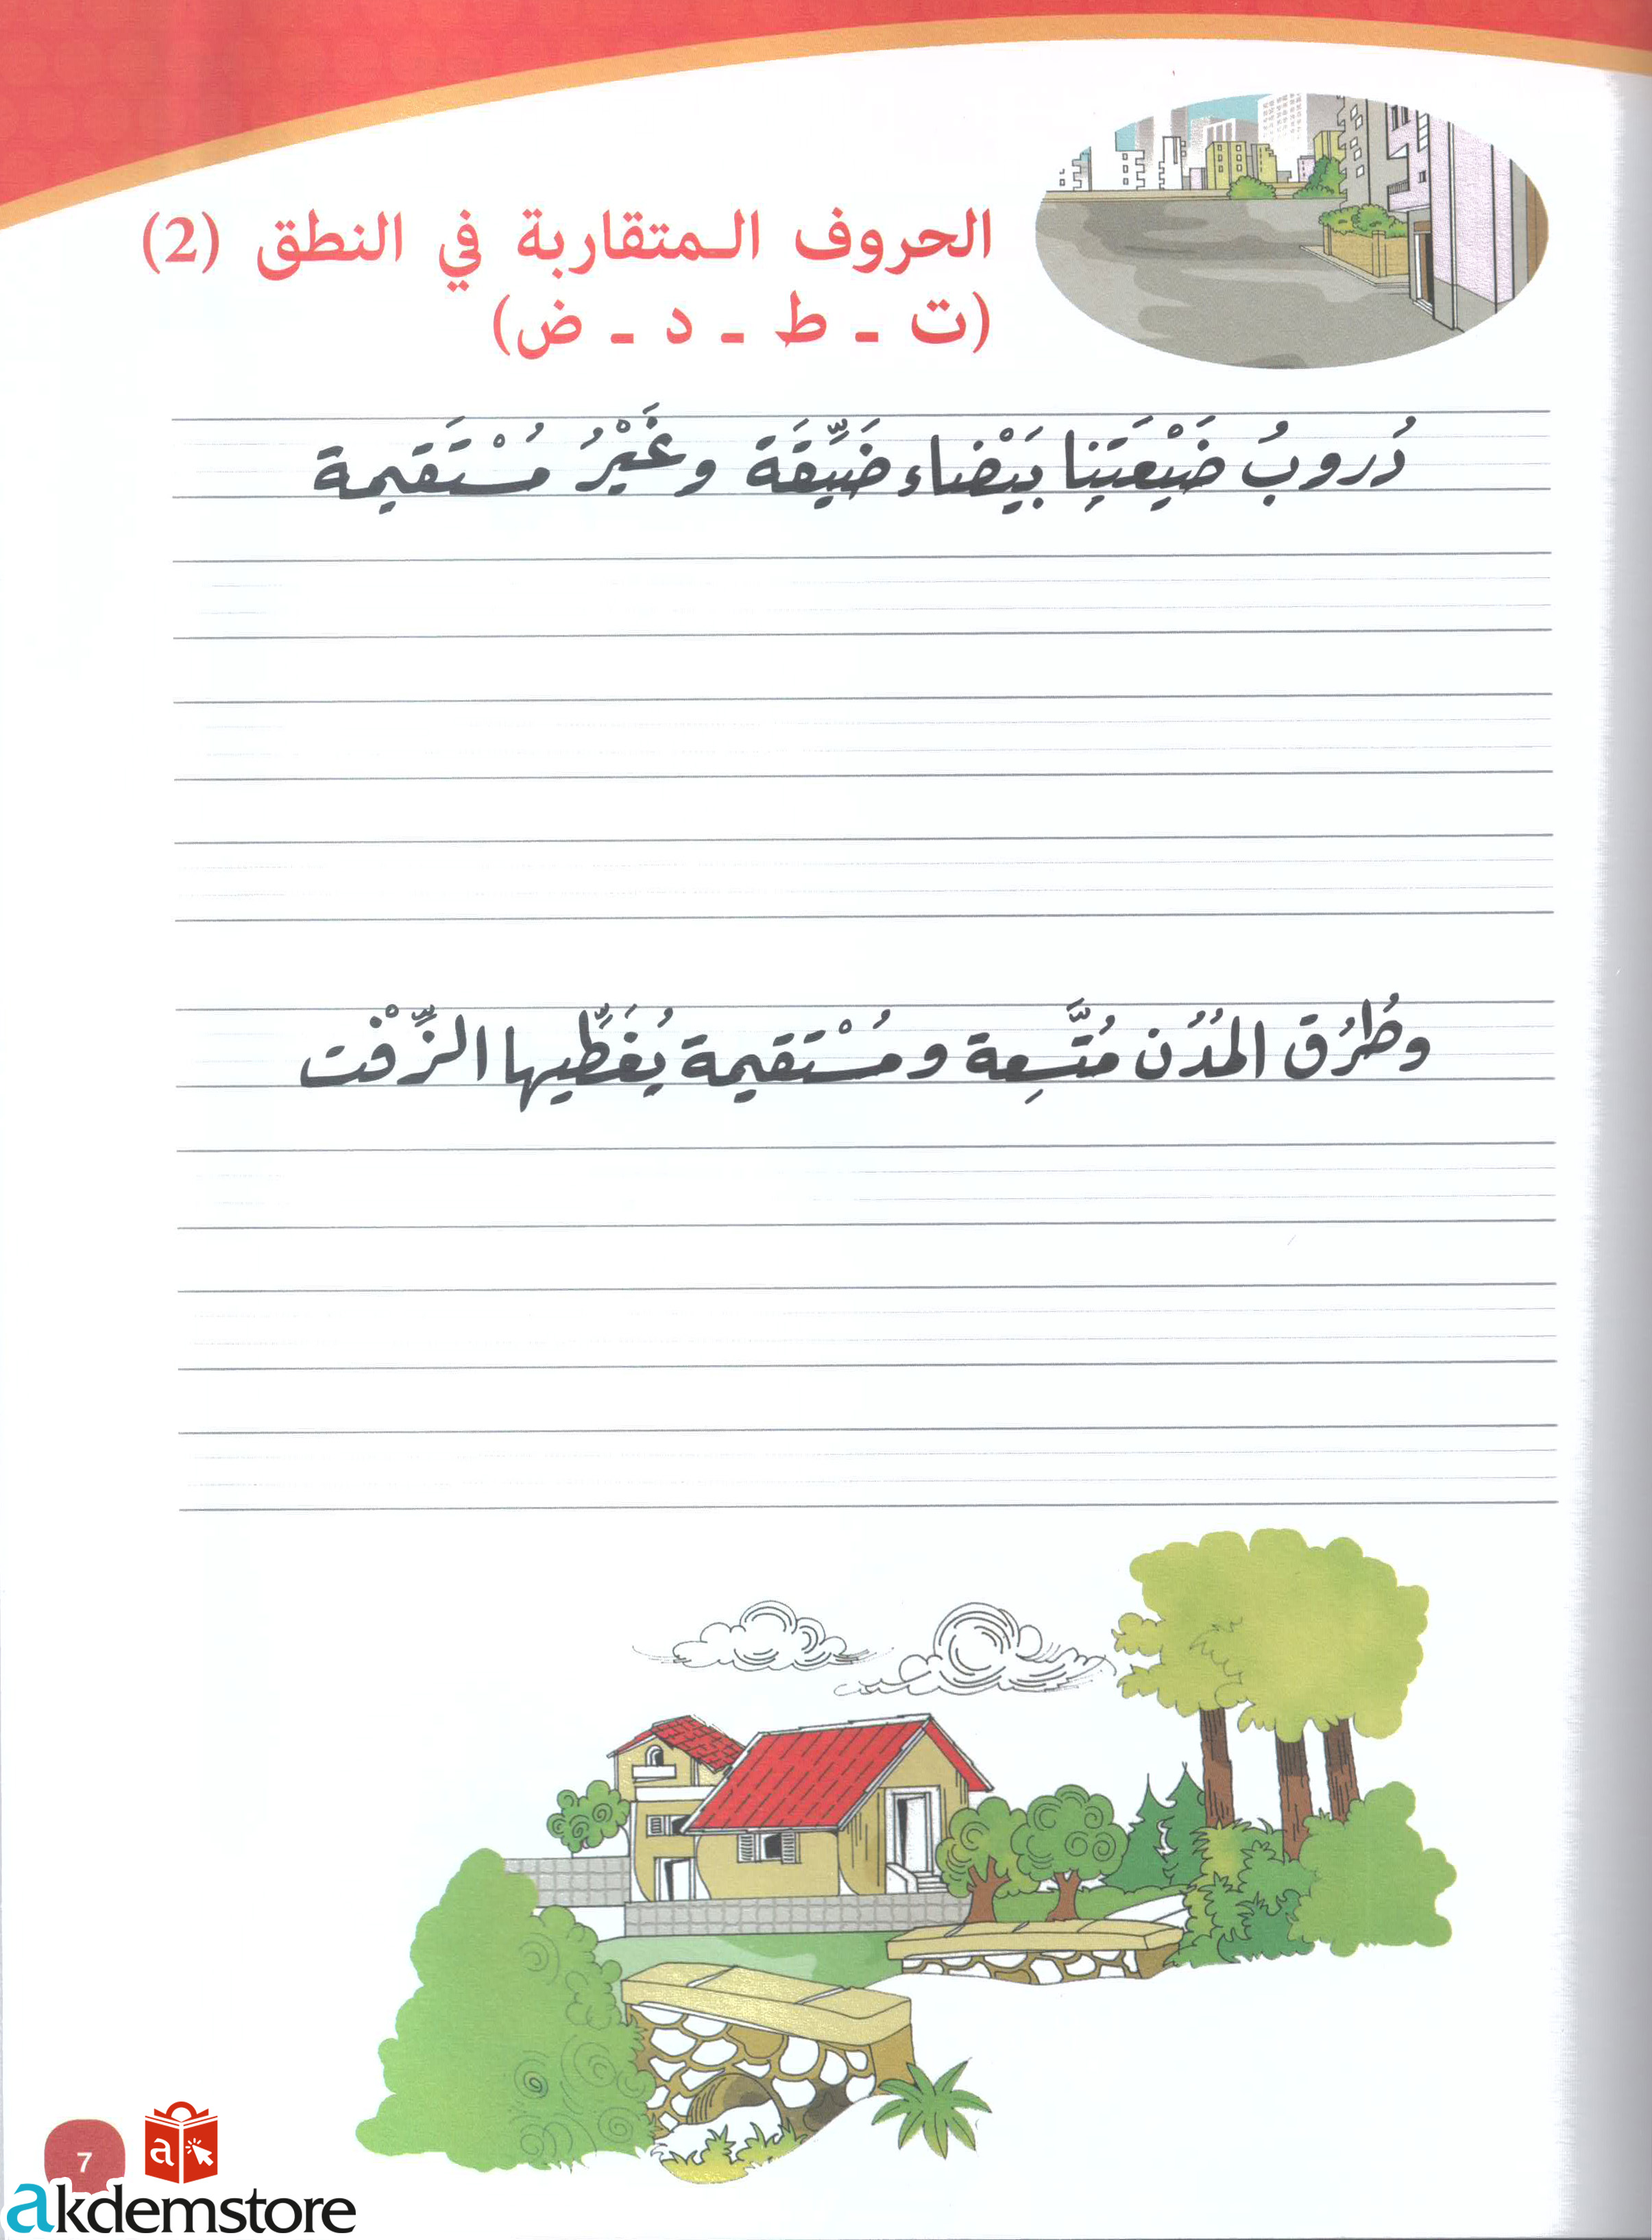 الحروف المتقاربة في النطق (2)
(ت - ط - د - ض)
دُروبُ ضَيْعَتَنِا بَيْضاء ضَيِّقَة وغَيْرُ مُسْتَقيمة
وطُرُق المُدُن مُتَّسِعة ومُسْتَقيمة يُغَطِّيها الزِّفْت
7
a
akdemstore